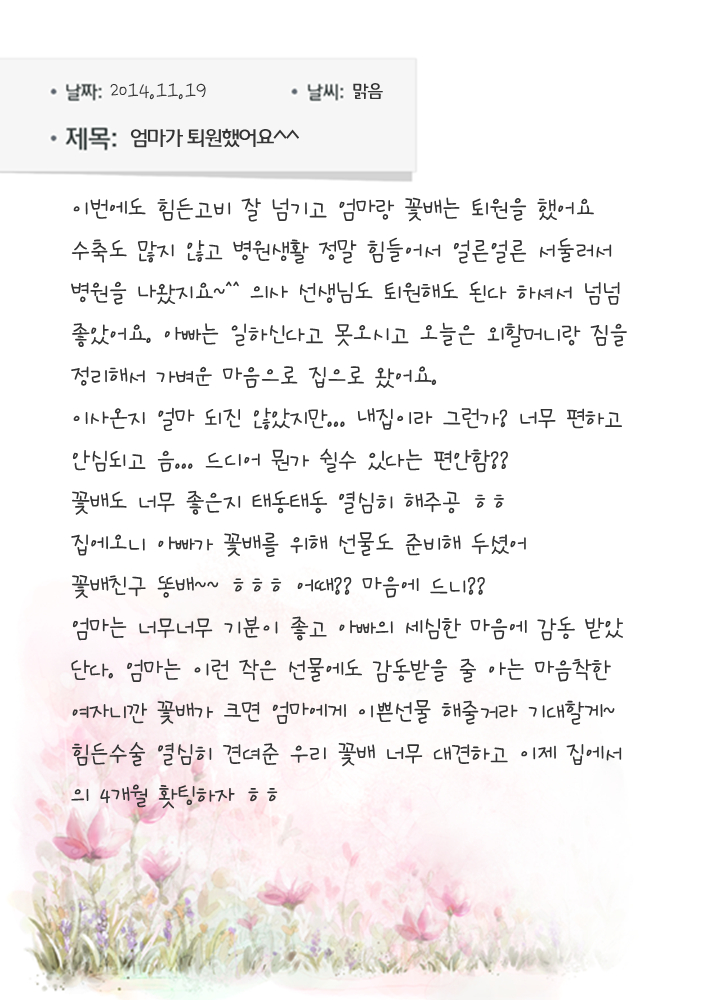 • 날짜: 2014.11.19 • 날씨: 맑음
• 제목: 엄마가 퇴원했어요^^
이번에도 힘든고비 잘 넘기고 엄마랑 꽃배는 퇴원을 했어요
수축도 많지 않고 병원생활 정말 힘들어서 얼른얼른 서둘러서
병원을 나왔지요~^^ 의사 선생님도 퇴원해도 된다 하셔서 넘넘
좋았어요. 아빠는 일하신다고 못오시고 오늘은 외할머니랑 짐을
정리해서 가벼운 마음으로 집으로 왔어요.
이사온지 얼마 되진 않았지만... 내집이라 그런가? 너무 편하고
안심되고 음... 드디어 뭔가 쉴수 있다는 편안함??
꽃배도 너무 좋은지 태동태동 열심히 해주공 ㅎㅎ
집에오니 아빠가 꽃배를 위해 선물도 준비해 두셨어
꽃배친구 똥배~~ ㅎㅎㅎ 어때?? 마음에 드니??
엄마는 너무너무 기분이 좋고 아빠의 세심한 마음에 감동 받았
단다. 엄마는 이런 작은 선물에도 감동받을 줄 아는 마음착한
여자니깐 꽃배가 크면 엄마에게 이쁜선물 해줄거라 기대할게~
힘든수술 열심히 견뎌준 우리 꽃배 너무 대견하고 이제 집에서
의 4개월 홧팅하자 ㅎㅎ